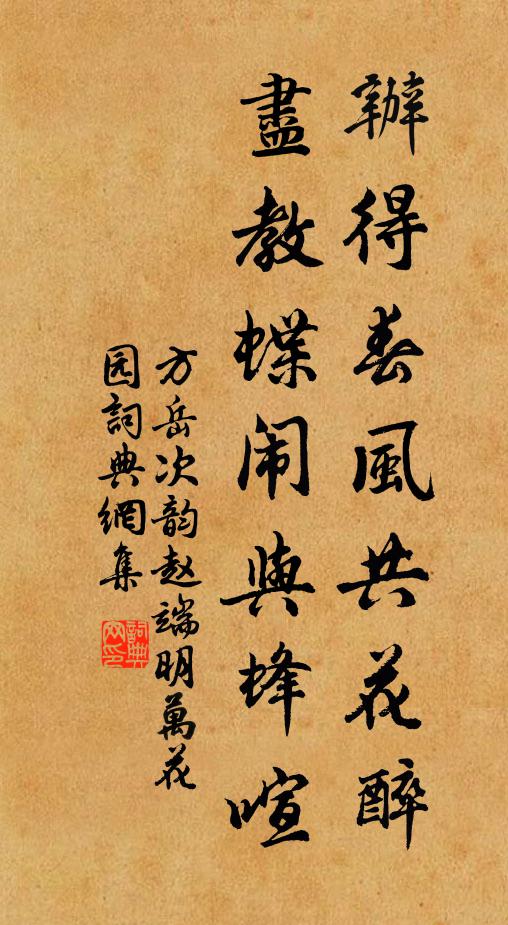 辦得春風共花醉
盡教蝶闹與蜂喧
方岳次韵赵端明萬花
园詞典網集
詞典網印